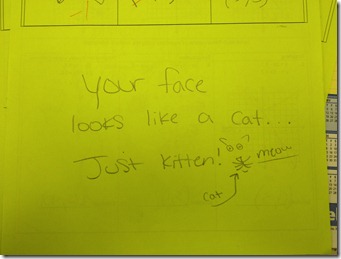 Your face
looks like a cat...
Just kitten! meow
cat